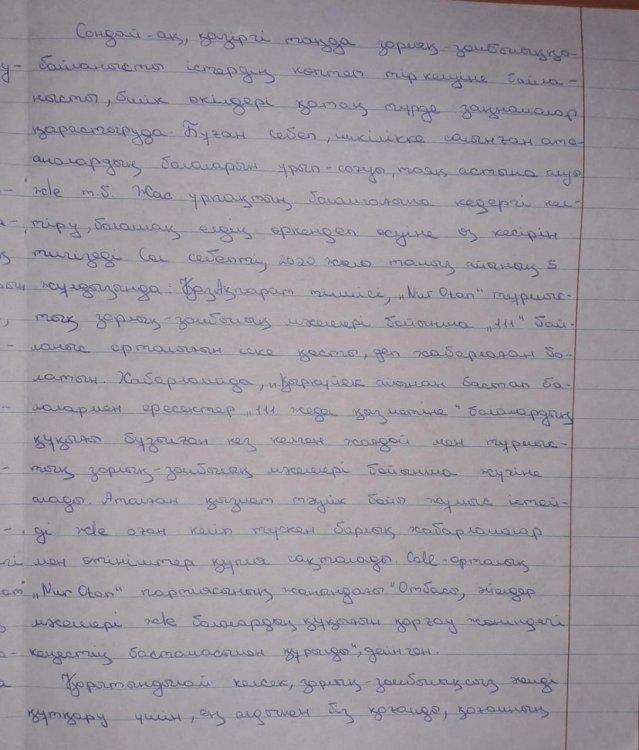 Сондай-ақ, қазіргі таңда зорлық-зомбылыққа
у- байланысты істердің көптеп тіркелуіне байла-
нысты, билік өкілдері қатаң түрде заңнамалар
қарастыруда. Бұған себеп, ішкілікке салынған ата-
аналардың балаларын ұрып-соғуы, таяқ астына алуы
- және т.б. Жас ұрпақтың болашағына кедергі кел-
- тіру, болашақ елдің өркендеп өсуіне өз кесірін
қ тигізеді. Сол себепті, 2020 жылы тамыз айының 5
жұлдызында: ҚазАқпарат тілшісі, „Nur Otan" тұрмыс-
, тық зорлық-зомбылық мәселелері бойынша „111" бай-
- ланыс орталығын іске қосты, деп хабарлаған бо-
латын. Хабарламада, „Қыркүйек айынан бастап ба-
- лалармен ересектер „111 жеде қызметіне" балалардың
құқығы бұзылған кез келген жағдай мен тұрмыс-
- тық зорлық-зомбылық мәселелері бойынша жүгіне
алады. Аталған қызмет тәулік бойы жұмыс істей-
- ді және оған келіп түскен барлық хабарламалар
гі мен өтініштер құпия сақталады. Call-орталық
ат „Nur Otan" партиясының жанындағы "Отбасы, әйелдер
қ мәселелері және балалардың құқығын қорғау жөніндегі
а- кеңестің бастамасымен құрылды", делінген.
а Қорытындылай келсек, зорлық-зомбылықсыз әлемді
құтқару үшін, ең алдымен біз қоғамды, қоғамның